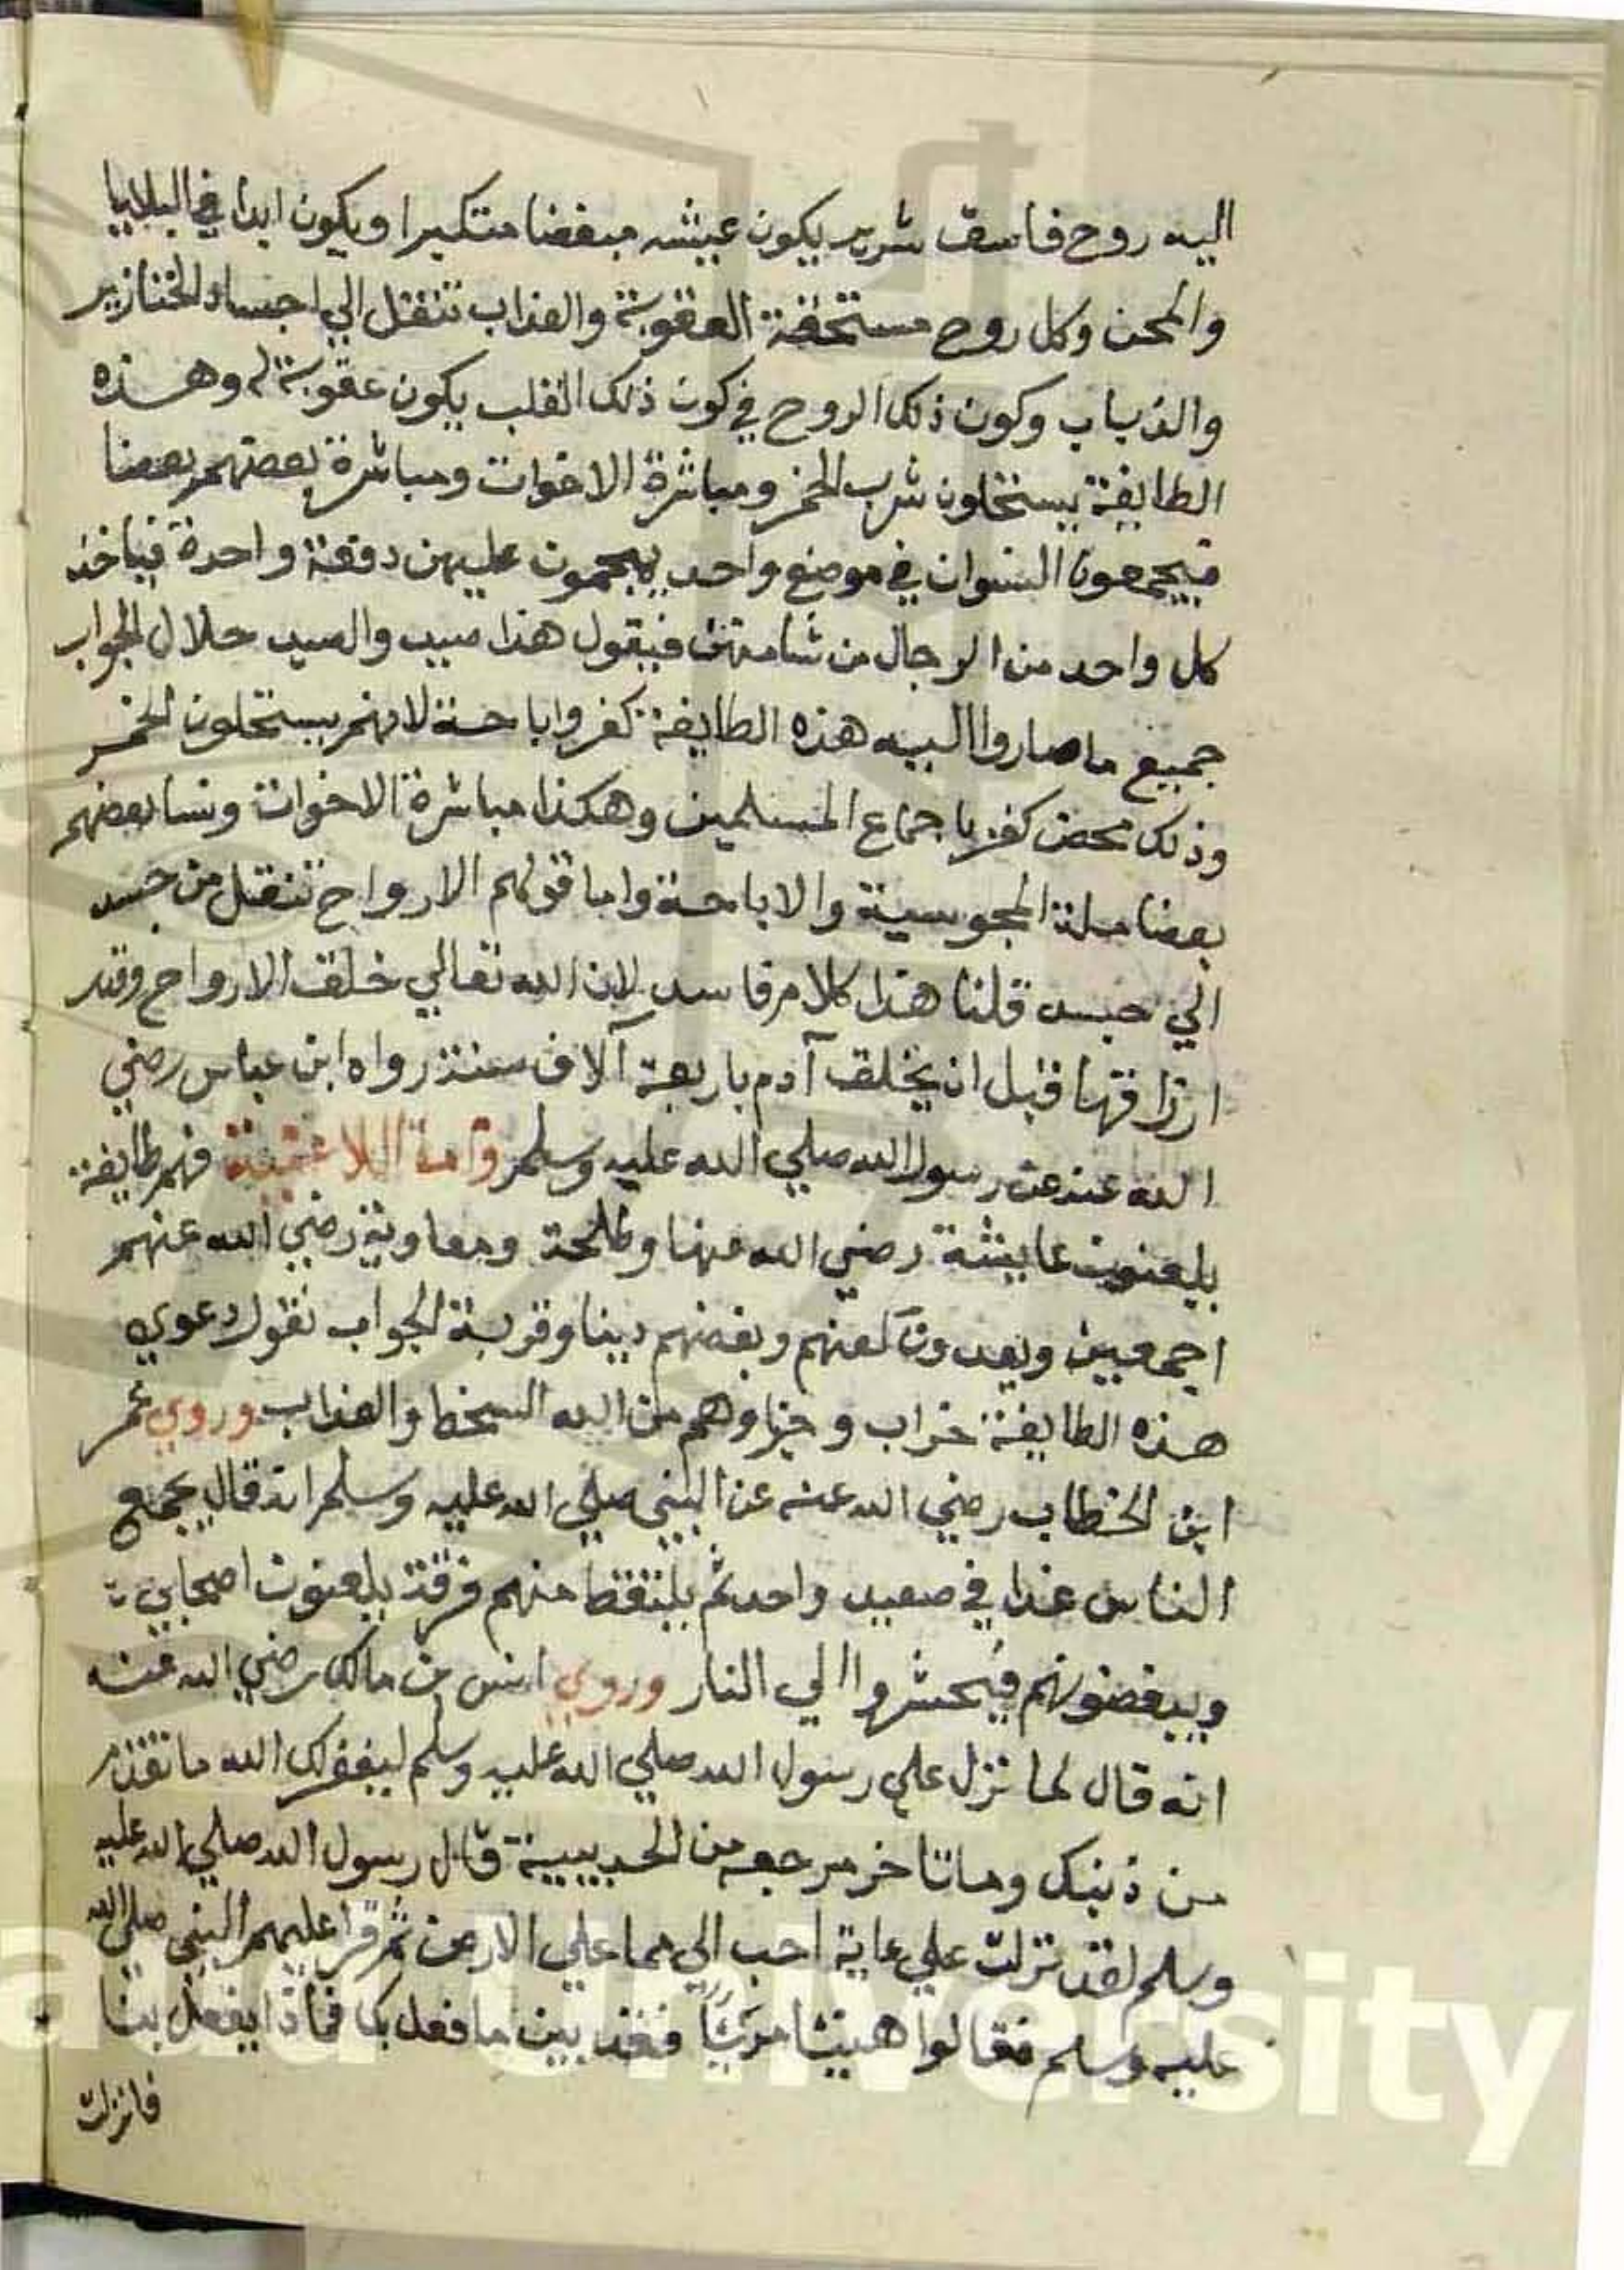 اليه روح فاسق شرير يكون عيشه مبغضا متكبرا ويكون ابدا في البلايا
والمحن وكل روح مستحقة العقوبة والعذاب تنتقل الي اجساد الخنازير
والذباب وكون ذلك الروح في كون ذلك القلب يكون عقوبة له وهذه
الطايفة يستحلون شرب الخمر ومباشرة الاخوات ومباشرة بعضهم بعضا
فيجمعون النسوان في موضع واحد يهجمون عليهن دفعة واحدة فياخذ
كل واحد من الرجال من شامتهن فيقول هذا صيد والصيد حلال الجواب
جميع ما صاروا اليه هذه الطايفة كفر واباحة لانهم يستحلون الخمر
وذلك محض كفر باجماع المسلمين وهكذا مباشرة الاخوات ونسا بعضهم
بعضا ملة المجوسية والاباحة واما قولهم الارواح تنتقل من جسد
الي جسد قلنا هذا كلام فاسد لان الله تعالي خلق الارواح وقدر
ارزاقها قبل ان يخلق آدم باربعة آلاف سنة رواه ابن عباس رضي
الله عنه عن رسول الله صلي الله عليه وسلم وامة اللاعنية فهم طايفة
يلعنون عايشة رضي الله عنها وطلحة ومعاوية رضي الله عنهم
اجمعين ويعدون لعنهم وبغضهم دينا وقربة الجواب نقول دعوي
هذه الطايفة خراب وجزاوهم من الله السخط والعذاب وروي عمر
ابن الخطاب رضي الله عنه عن النبي صلي الله عليه وسلم انه قال يجمع
الناس غدا في صعيد واحد ثم يلتقط منهم فرقة يلعنون اصحابي
ويبغضونهم فيحشروا الي النار وروي انس بن مالك رضي الله عنه
انه قال لما نزل علي رسول الله صلي الله عليه وسلم ليغفر لك الله ما تقدم
من ذنبك وما تاخر مرجعه من الحديبية قال رسول الله صلي الله عليه
وسلم لقد نزلت علي عاية احب الي مما علي الارض ثم قرا عليهم النبي صلي الله
عليه وسلم فقالوا هنيئا مريئا فقد بين ما فعل بك فماذا يفعل بنا
فانزلت